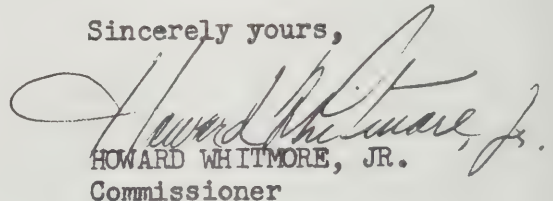 Sincerely yours,
Howard Whitmore, Jr.
HOWARD WHITMORE, JR.
Commissioner